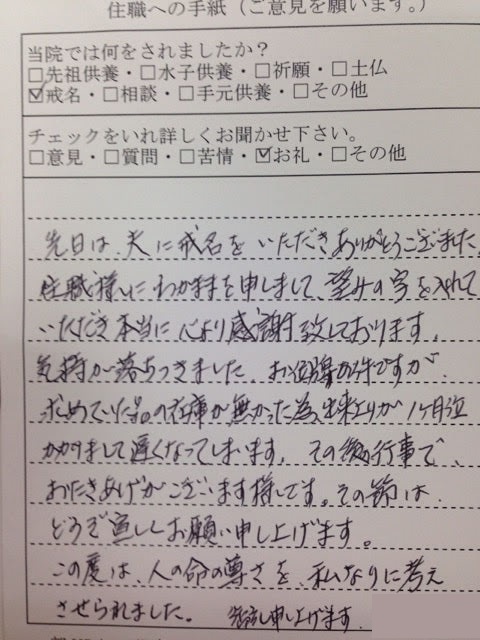 住職への手紙（ご意見を願います。）
当院では何をされましたか？
□先祖供養・□水子供養・□祈願・□土仏
☑戒名・□相談・□手元供養・□その他
チェックをいれ詳しくお聞かせ下さい。
□意見・□質問・□苦情・☑お礼・□その他
先日は、夫に戒名をいただきありがとうございました。
住職様にわがままを申しまして、望みの字を入れて
いただき本当に心より感謝致しております。
気持が落ちつきました。お位牌の件ですが
求めていた品の在庫が無かった為、出来上りが1ヶ月位
かかりまして遅くなってしまいます。その後の行事で、
おたきあげがございます様してす。その節は
どうぞ宜しくお願い申し上げます。
この度は、人の命の尊さを、私なりに考え
させられました。 申し上げます。